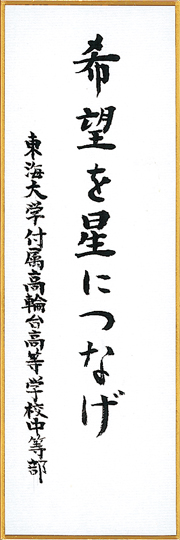 希望を星につなげ
東海大学付属高輪台高等学校中等部